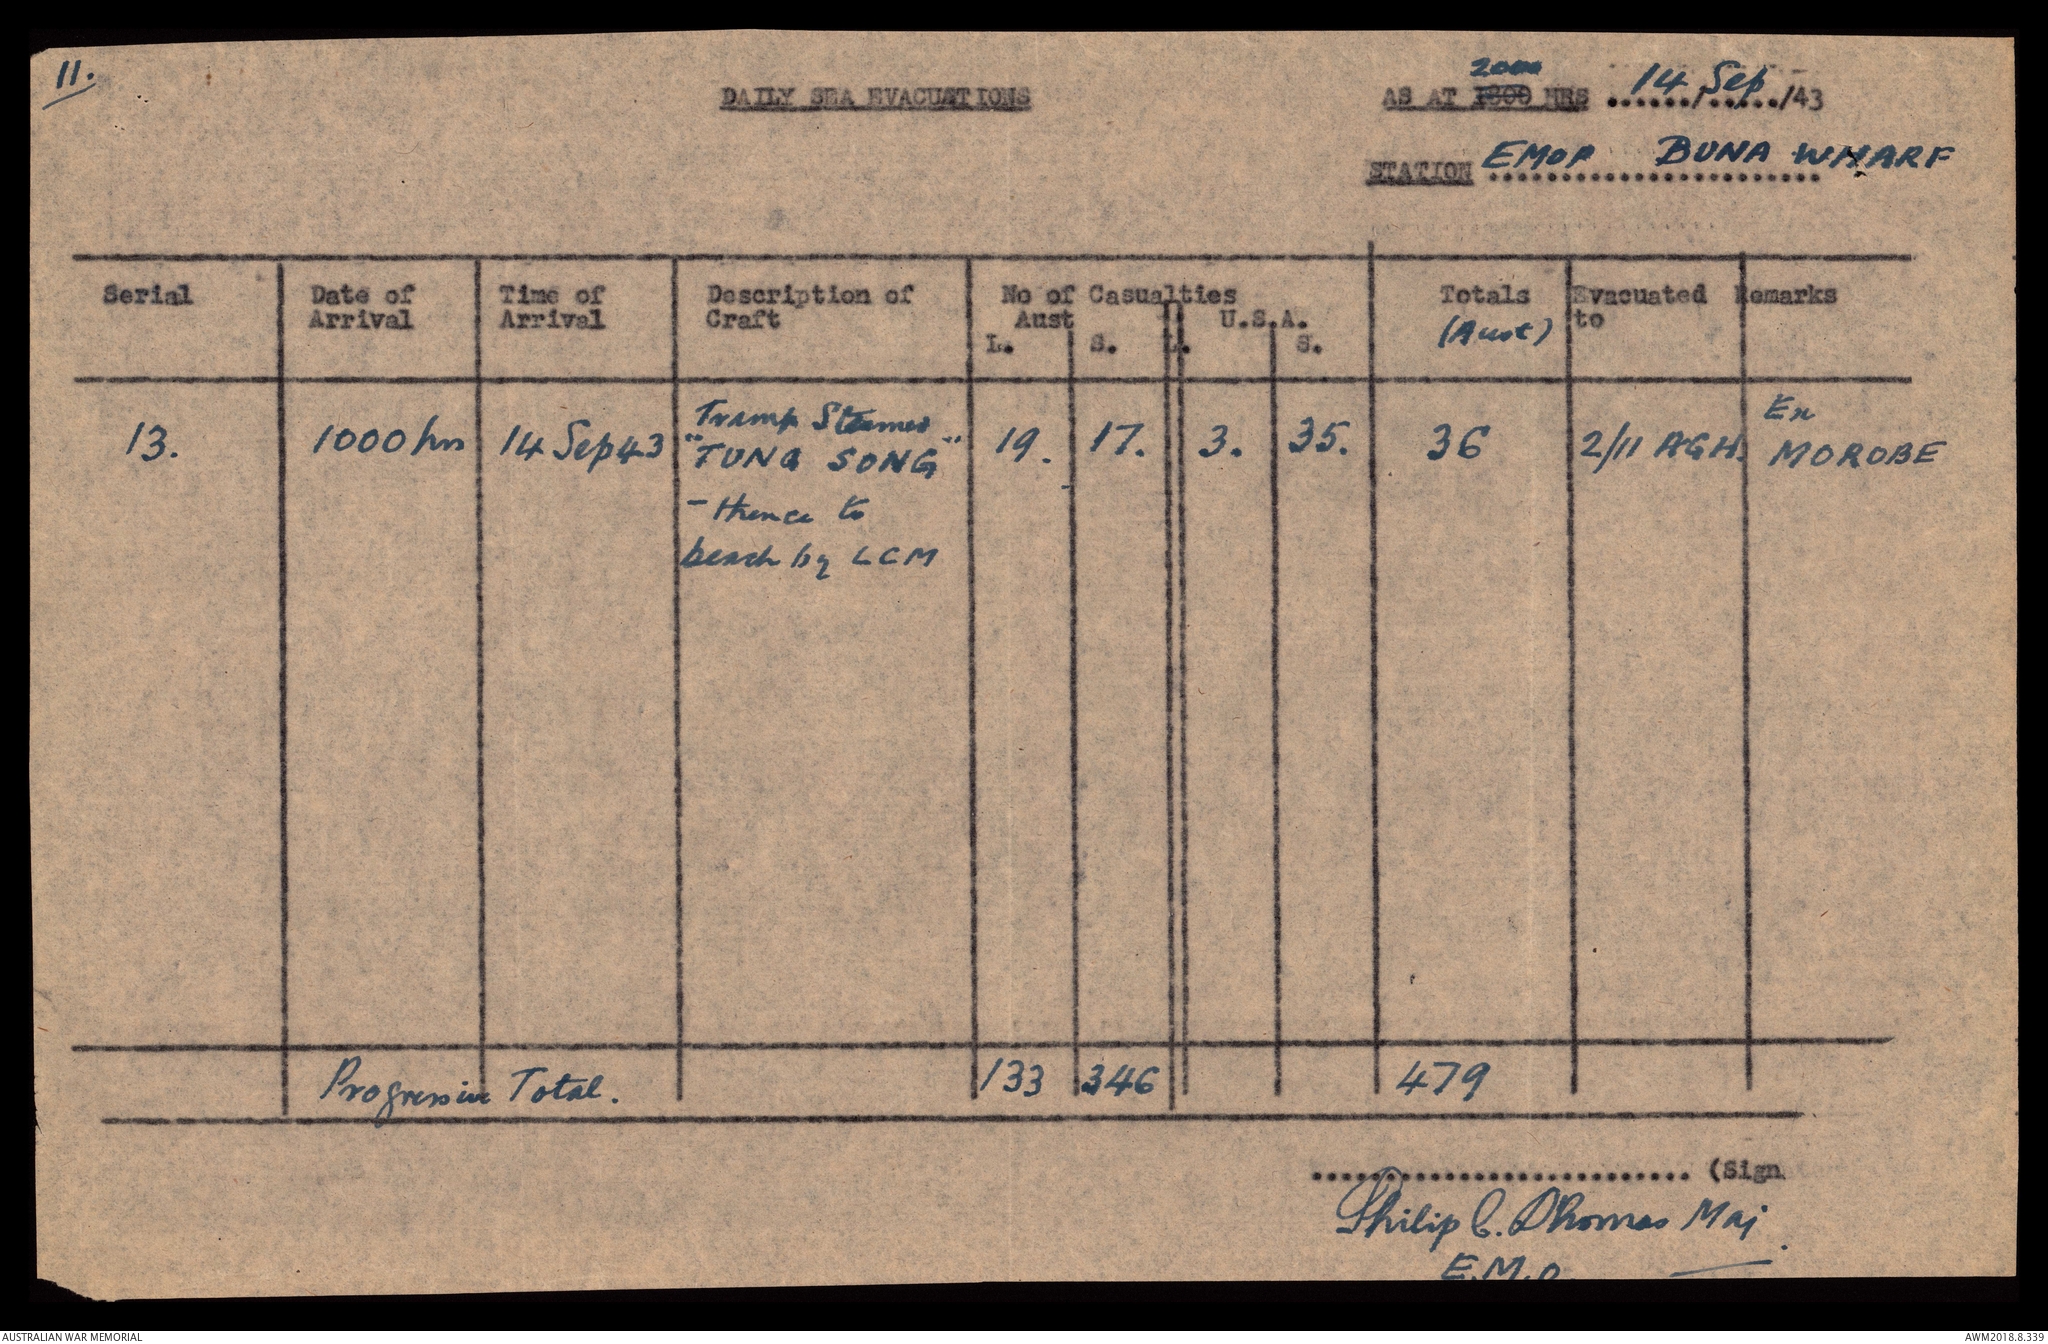 11.
DAILY SEA EVACUATIONS
2000
AS AT 1800 HRS 14/Sep/43
STATION EMOR BUNA WHARF
Serial Date of Time of Description of No of Casualties Totals Evacuated Remarks
Arrival Arrival Craft Aust U.S.A. (Aust) to
L. S. L. S.
13. 1000 hrs 14 Sep 43 Tramp Steamer 19. 17. 3. 35. 36 2/11 AGH. Ex
"TUNG SONG" MOROBE
- thence to
beach by LCM
Progressive Total. 133 346 479
(Sign
Philip C. Thomas Maj.
E.M.O
AUSTRALIAN WAR MEMORIAL AWM2018.8.339